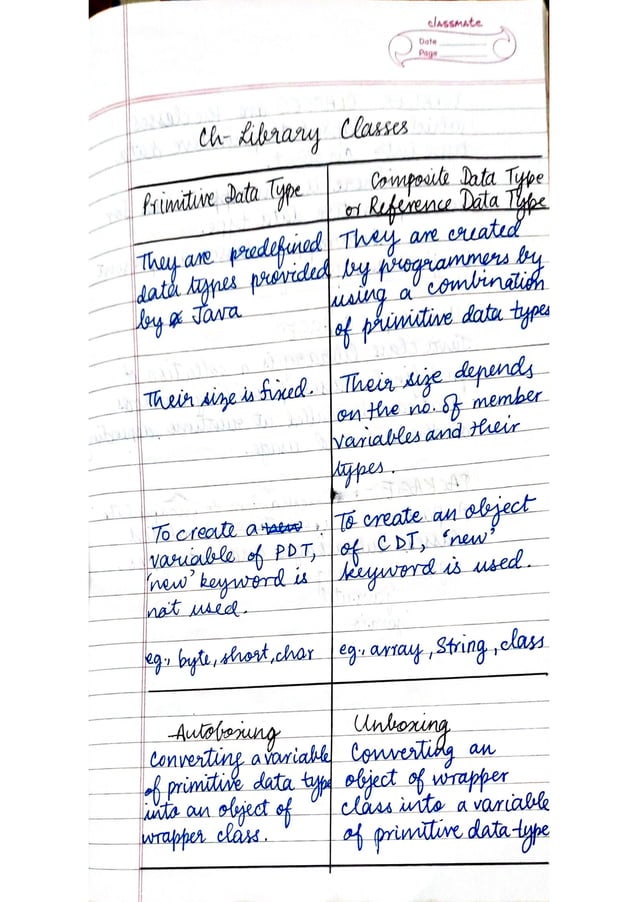 classmate
Date
Page
Ch- Library Classes
Primitive Data Type
Composite Data Type
or Reference Data Type
They are predefined
data types provided
by Java
They are created
by programmers by
using a combination
of primitive data types
Their size is fixed.
Their size depends
on the no. of member
variables and their
types.
To create a
variable of PDT,
'new' keyword is
not used.
To create an object
of CDT, 'new'
keyword is used.
eg., byte, short, char
eg., array, String, class
Autoboxing
Converting a variable
of primitive data type
into an object of
wrapper class.
Unboxing
Converting an
object of wrapper
class into a variable
of primitive data-type